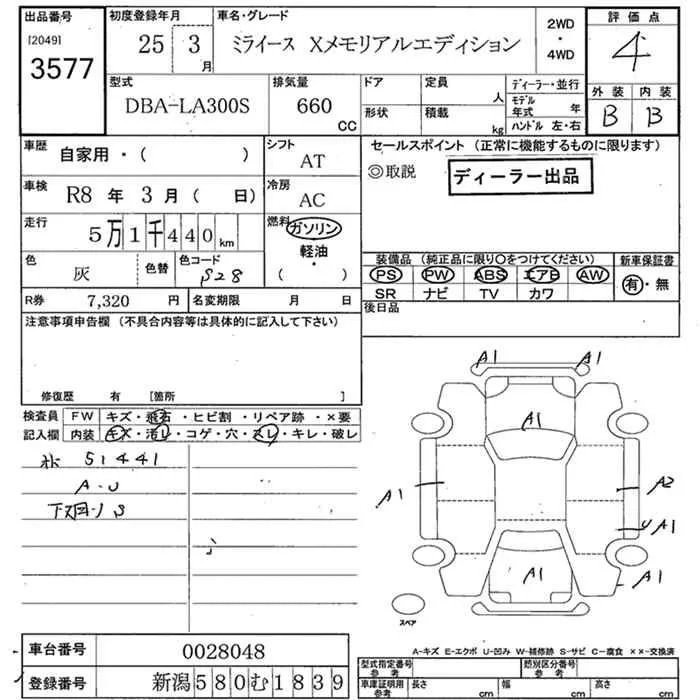 出品番号
[2049]
3577
初度登録年月
25 3月
車名・グレード
ミライース Xメモリアルエディション
2WD
・
4WD
評価点
4
外装 内装
B B
型式
DBA-LA300S
排気量
660 CC
ドア
形状
定員 人
積載 kg
ディーラー・並行
モデル年式 年
ハンドル 左・右
車歴 自家用・( )
シフト AT
車検 R8年 3月( 日)
冷房 AC
走行 5万1千440km
燃料 ガソリン・軽油・( )
色 灰 色替 色コード S28
R券 7,320円 名変期限 月 日
セールスポイント (正常に機能するものに限ります)
◎取説
ディーラー出品
装備品 (純正品に限り○をつけてください)
PS PW ABS エアB AW
SR ナビ TV カワ
新車保証書
有・無
後日品
注意事項申告欄 (不具合内容等は具体的に記入して下さい)
修復歴 有 [箇所 ]
検査員記入欄
FW キズ・飛石・ヒビ割・リペア跡・×要
内装 キズ・汚レ・コゲ・穴・スレ・キレ・破レ
51441
A・U
下廻り S
A1 A1
A1
A1 A2
U A1
A1 A1
スペア
A-キズ E-エクボ U-凹み W-補修跡 S-サビ C-腐食 ××-交換済
車台番号 0028048
登録番号 新潟580む1839
型式指定番号 参考
類別区分番号 参考
車庫証明用 参考 長さ cm 幅 cm 高さ cm